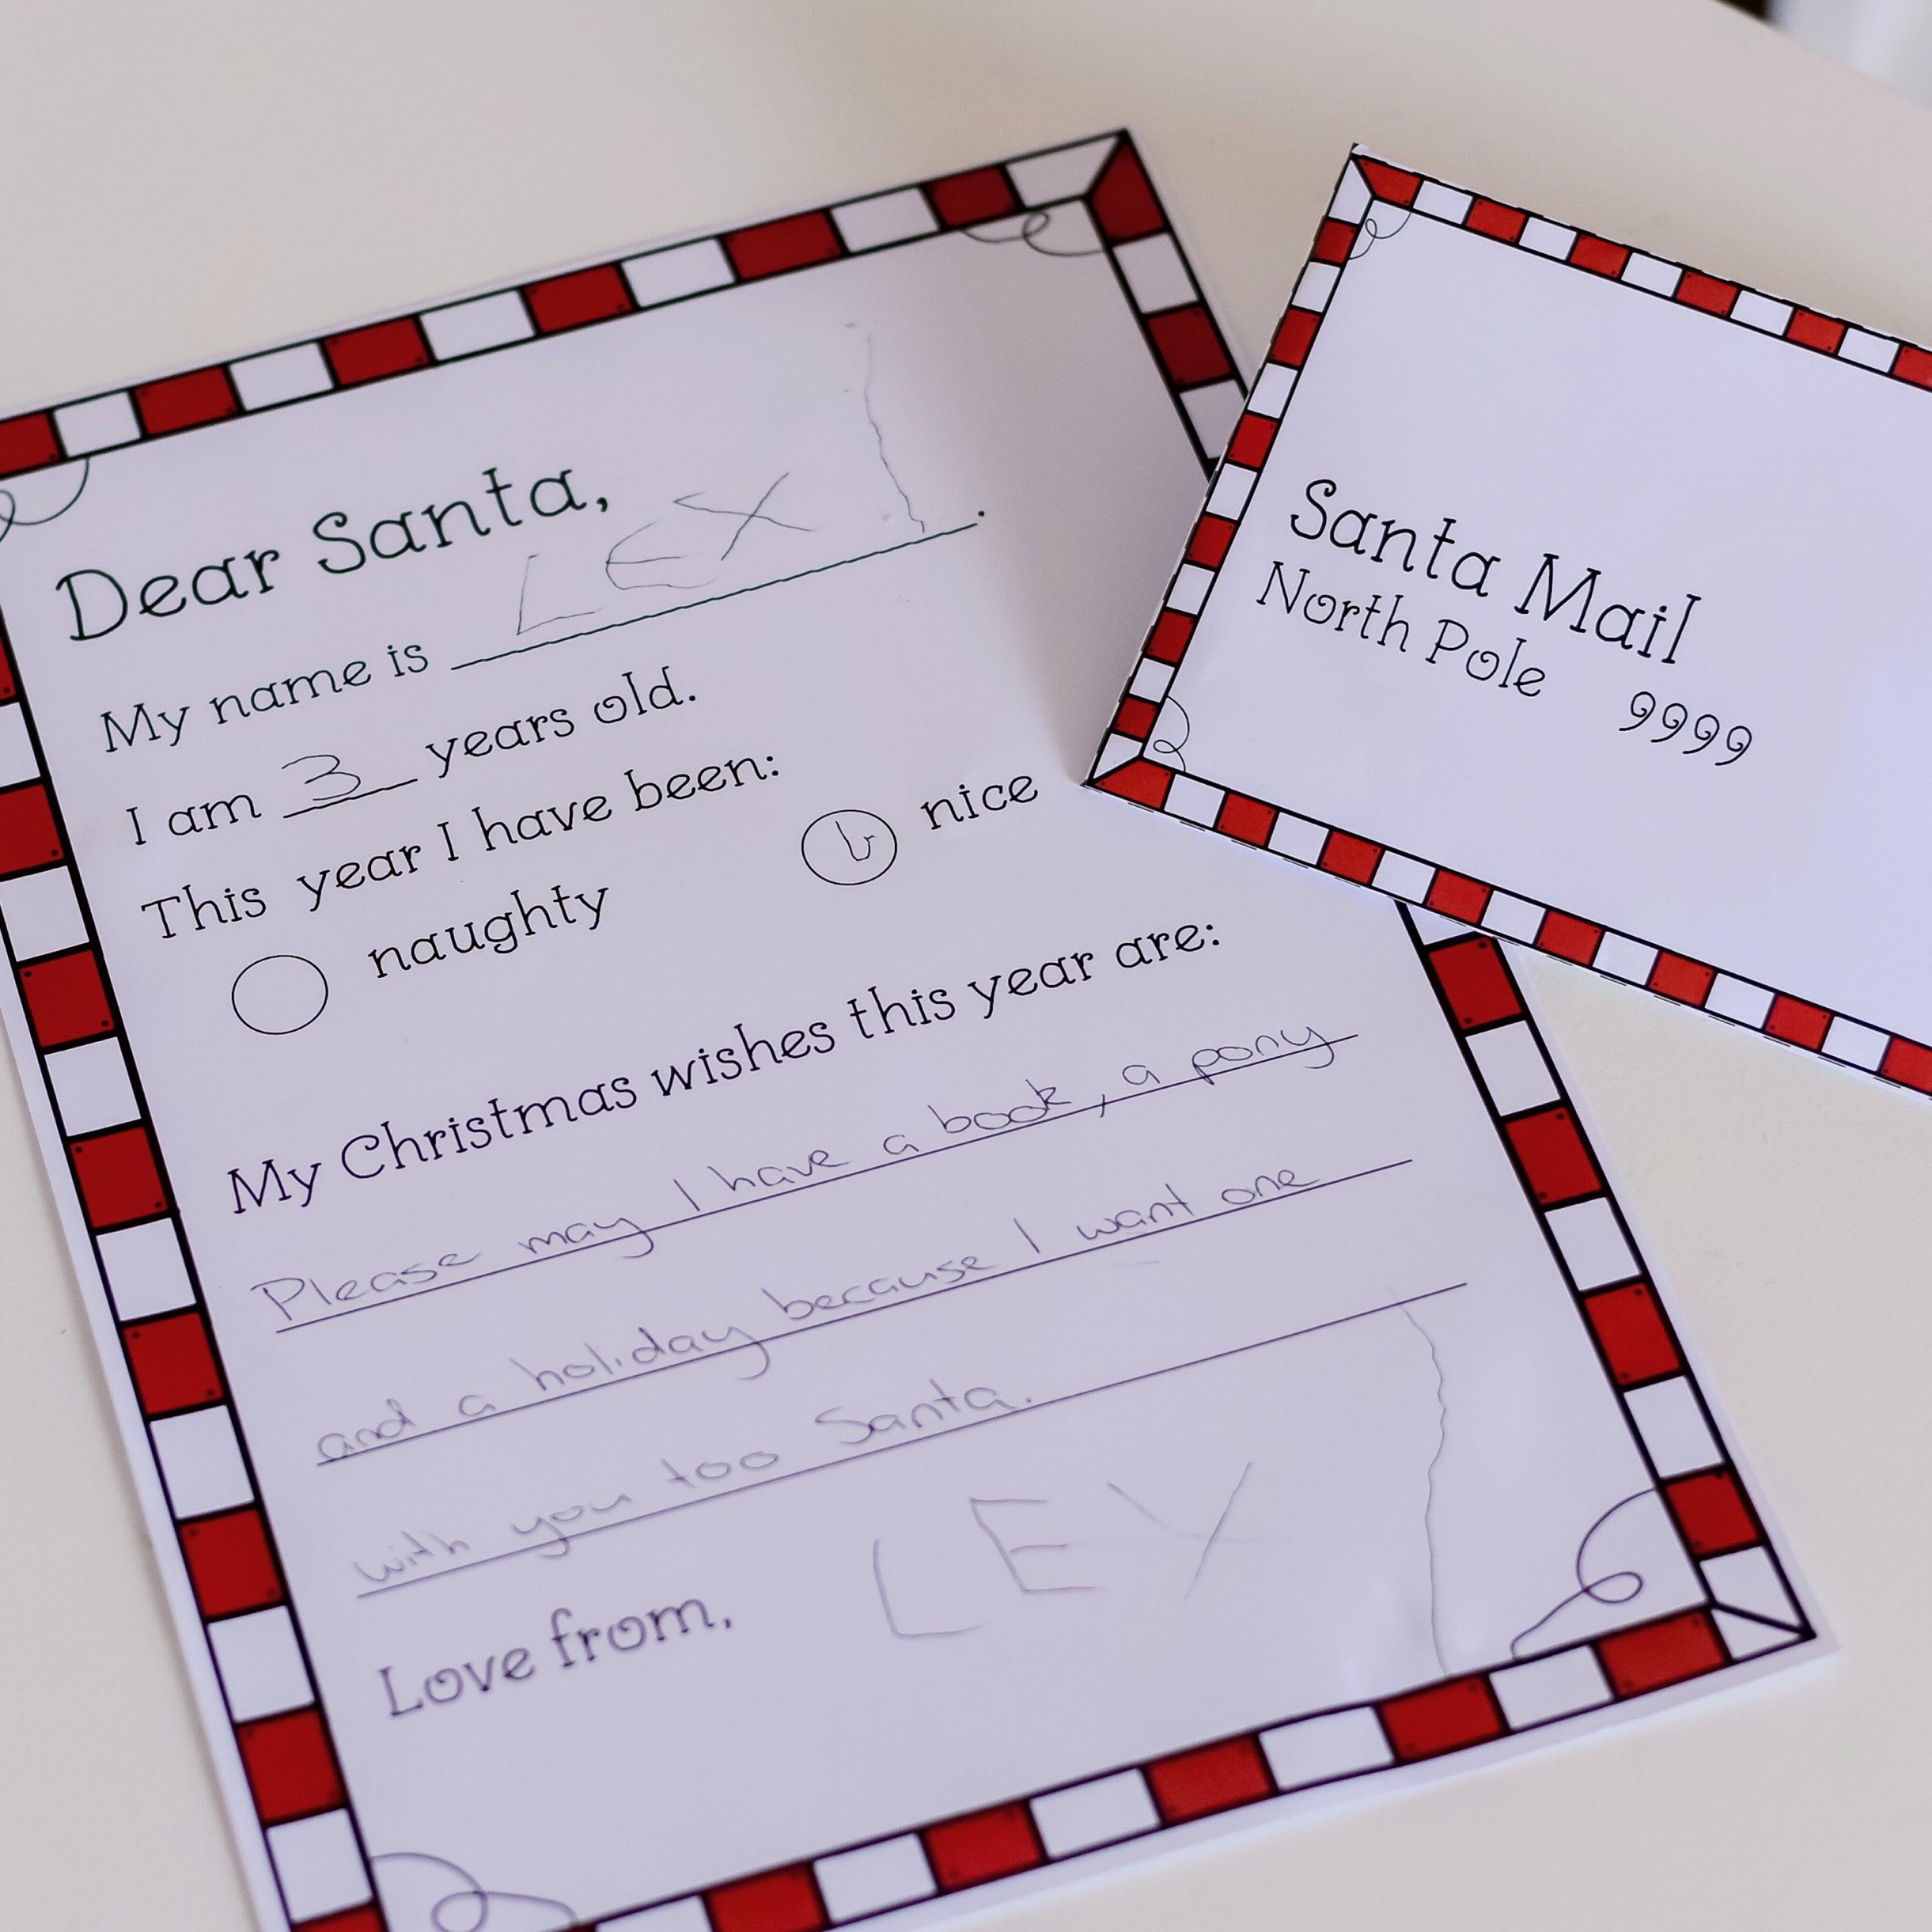 Dear Santa,
My name is LEX.
I am 3 years old.
This year I have been:
naughty nice
My Christmas wishes this year are:
Please may I have a book, a pony
and a holiday because I want one
with you too Santa.
Love from, LEX
Santa Mail
North Pole 9999